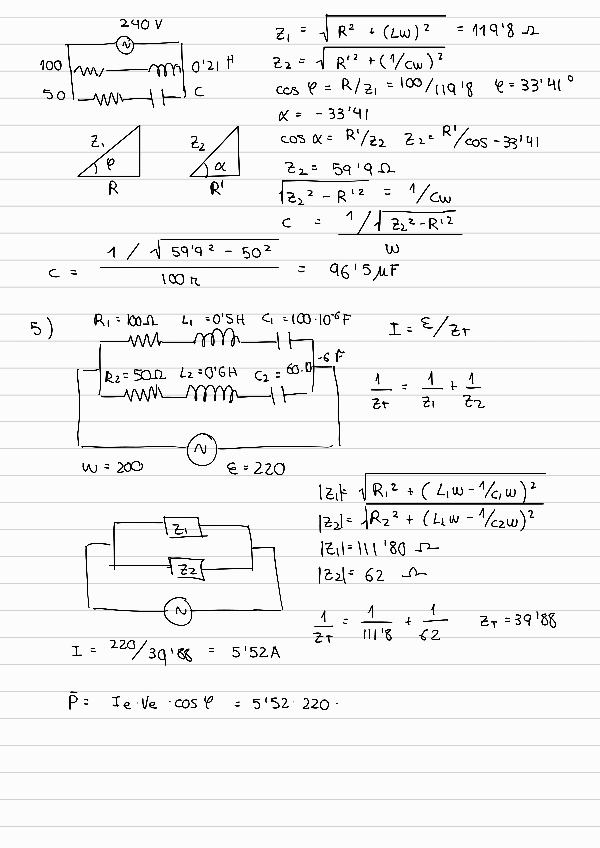 240 V
100 0'21 H
50 C
Z1 = √R² + (Lω)² = 119'8 Ω
Z2 = √R'² + (1/cω)²
cos φ = R/Z1 = 100/119'8 φ = 33'41°
α = -33'41
Z1 φ R
Z2 α R'
cos α = R'/Z2 Z2 = R'/cos -33'41
Z2 = 59'9 Ω
√Z2² - R'² = 1/Cω
C = 1/√Z2² - R'² / ω
C = 1/√59'9² - 50² / 100π = 96'5 μF
5)
R1 = 100Ω L1 = 0'5H C1 = 100·10⁻⁶F
R2 = 50Ω L2 = 0'6H C2 = 60·10⁻⁶F
ω = 200 ε = 220
I = ε/ZT
1/ZT = 1/Z1 + 1/Z2
|Z1| = √R1² + (L1ω - 1/C1ω)²
|Z2| = √R2² + (L1ω - 1/C2ω)²
|Z1| = 111'80 Ω
|Z2| = 62 Ω
Z1
Z2
1/ZT = 1/111'8 + 1/62 ZT = 39'88
I = 220/39'88 = 5'52A
P̄ = Ie·Ve·cos φ = 5'52·220·